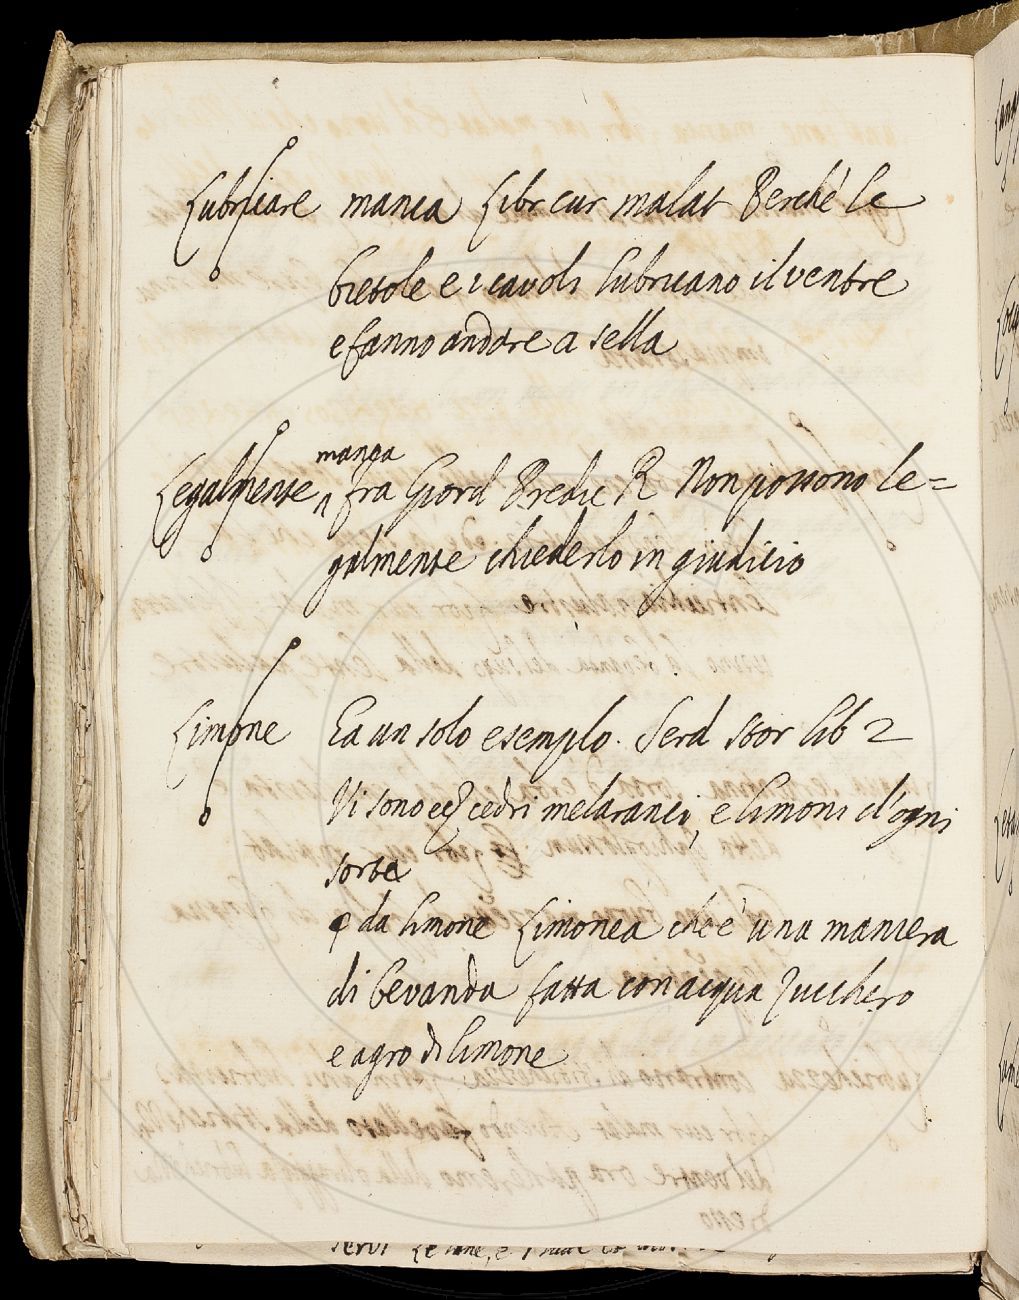 Lubricare manca Libr cur malat Perché le
bietole e i cavoli lubricano il ventre
e fanno andare a sella
manca
Legalmente fra Giord Predic R Non possono le=
galmente chiederlo in giudicio
Limone Ea un solo esempio. Serd Stor lib 2
Vi sono ecc cedri melaranci, e limoni d'ogni
sorte
da limone Limonea che è una maniera
di bevanda fatta con acqua Zucchero
e agro di limone